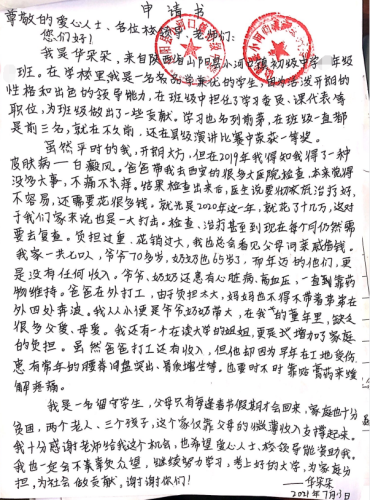 申请书
尊敬的爱心人士、各位校领导、老师们:
您们好!
我是华朵朵,来自陕西省山阳县小河口镇初级中学一年级
班。在学校里,我是一名名品学兼优的学生,因为活泼开朗的
性格和出色的领导能力,在班级中担任了学习委员、课代表等
职位,为班级做出了一些贡献。学习也名列前茅,在班级一直都
是前三名,就在不久前,还在县级演讲比赛中荣获一等奖。
虽然平时的我,开朗大方,但在2019年我得知我得了一种
皮肤病——白癜风。爸爸带我去西安的很多大医院检查,本来觉得
没多大事,不痛不痒。结果检查出来后,医生说要彻底治疗好,
不容易,还需要花很多钱。就光是2020年这一年,就花了十几万,这对
于我们家来说也是一大打击。检查、治疗甚至到现在每个月仍然需
要去复查。负担过重,花销过大,我也总会看见父母问亲戚借钱。
我家一共七口人,爷爷70多岁,奶奶也65岁了,那年迈的他们,更
是没有任何收入。爷爷、奶奶还患有心脏病,高血压,一直到靠药
物维持。爸爸在外打工,由于负担太大,妈妈也不得不带着弟弟在
外四处奔波。我从小便是爷爷奶奶带大,在我的童年里,缺乏
很多父爱、母爱。我还有一个在读大学的姐姐,更是增加了家庭
的负担。虽然爸爸打工还有收入,但他却因为早年在工地受伤,
患有常年的腰脊间盘突出、骨质增生等,也要时不时靠贴膏药来缓
解疼痛。
我是一名留守学生,父母只有每逢春节假期才会回来,家庭也十分
贫困,两个老人,三个孩子,这个家仅靠父母的微薄收入支撑起来。
我十分感谢老师给我这个机会,也希望爱心人士、校领导能资助我。
我也一定会不辜负众望,继续努力学习,考上好的大学,为家庭分
担,为社会做贡献,谢谢你们!
——华朵朵
2021年7月3日